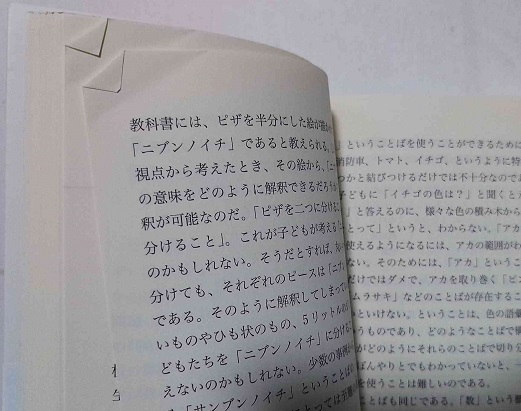 教科書には、ピザを半分にした絵が
「ニブンノイチ」であると教えられる。
視点から考えたとき、その絵から、「ニ
の意味をどのように解釈できるだろう
釈が可能なのだ。「ピザを二つに分ける
分けること」。これが子どもが考える「ニ
のかもしれない。そうだとすれば、
分けても、それぞれのピースは「ニブ
である。そのように解釈してしまってい
いものやひも状のもの、5リットルの
どもたちを「ニブンノイチ」に分ける
えないのかもしれない。少数の事例か
「サンブンノイチ」ということば
」ということばを使うことができるために
消防車、トマト、イチゴ、というように特
つかと結びつけるだけでは不十分なのであ
子どもに「イチゴの色は？」と聞くと
」と答えるのに、様々な色の積み木から
とって」というと、わからない。「アカ
使えるようになるには、アカの範囲がわ
い。そのためには、「アカ」というこ
だけではダメで、アカを取り巻く「ピ
ムラサキ」などのことばが存在するこ
いといけない。ということは、色の語彙
うものであり、どのようなことばで構
がどのようにそれらのことばで切り分
ぼんやりとでもわかっていないと、一
を使うことは難しいのである。
ことばも同じである。「数」という領